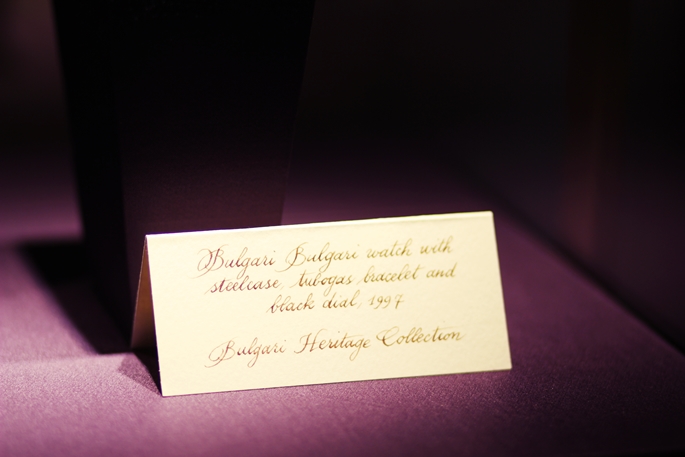 Bulgari Bulgari watch with
steelcase, tubogas bracelet and
black dial, 1997
Bulgari Heritage Collection